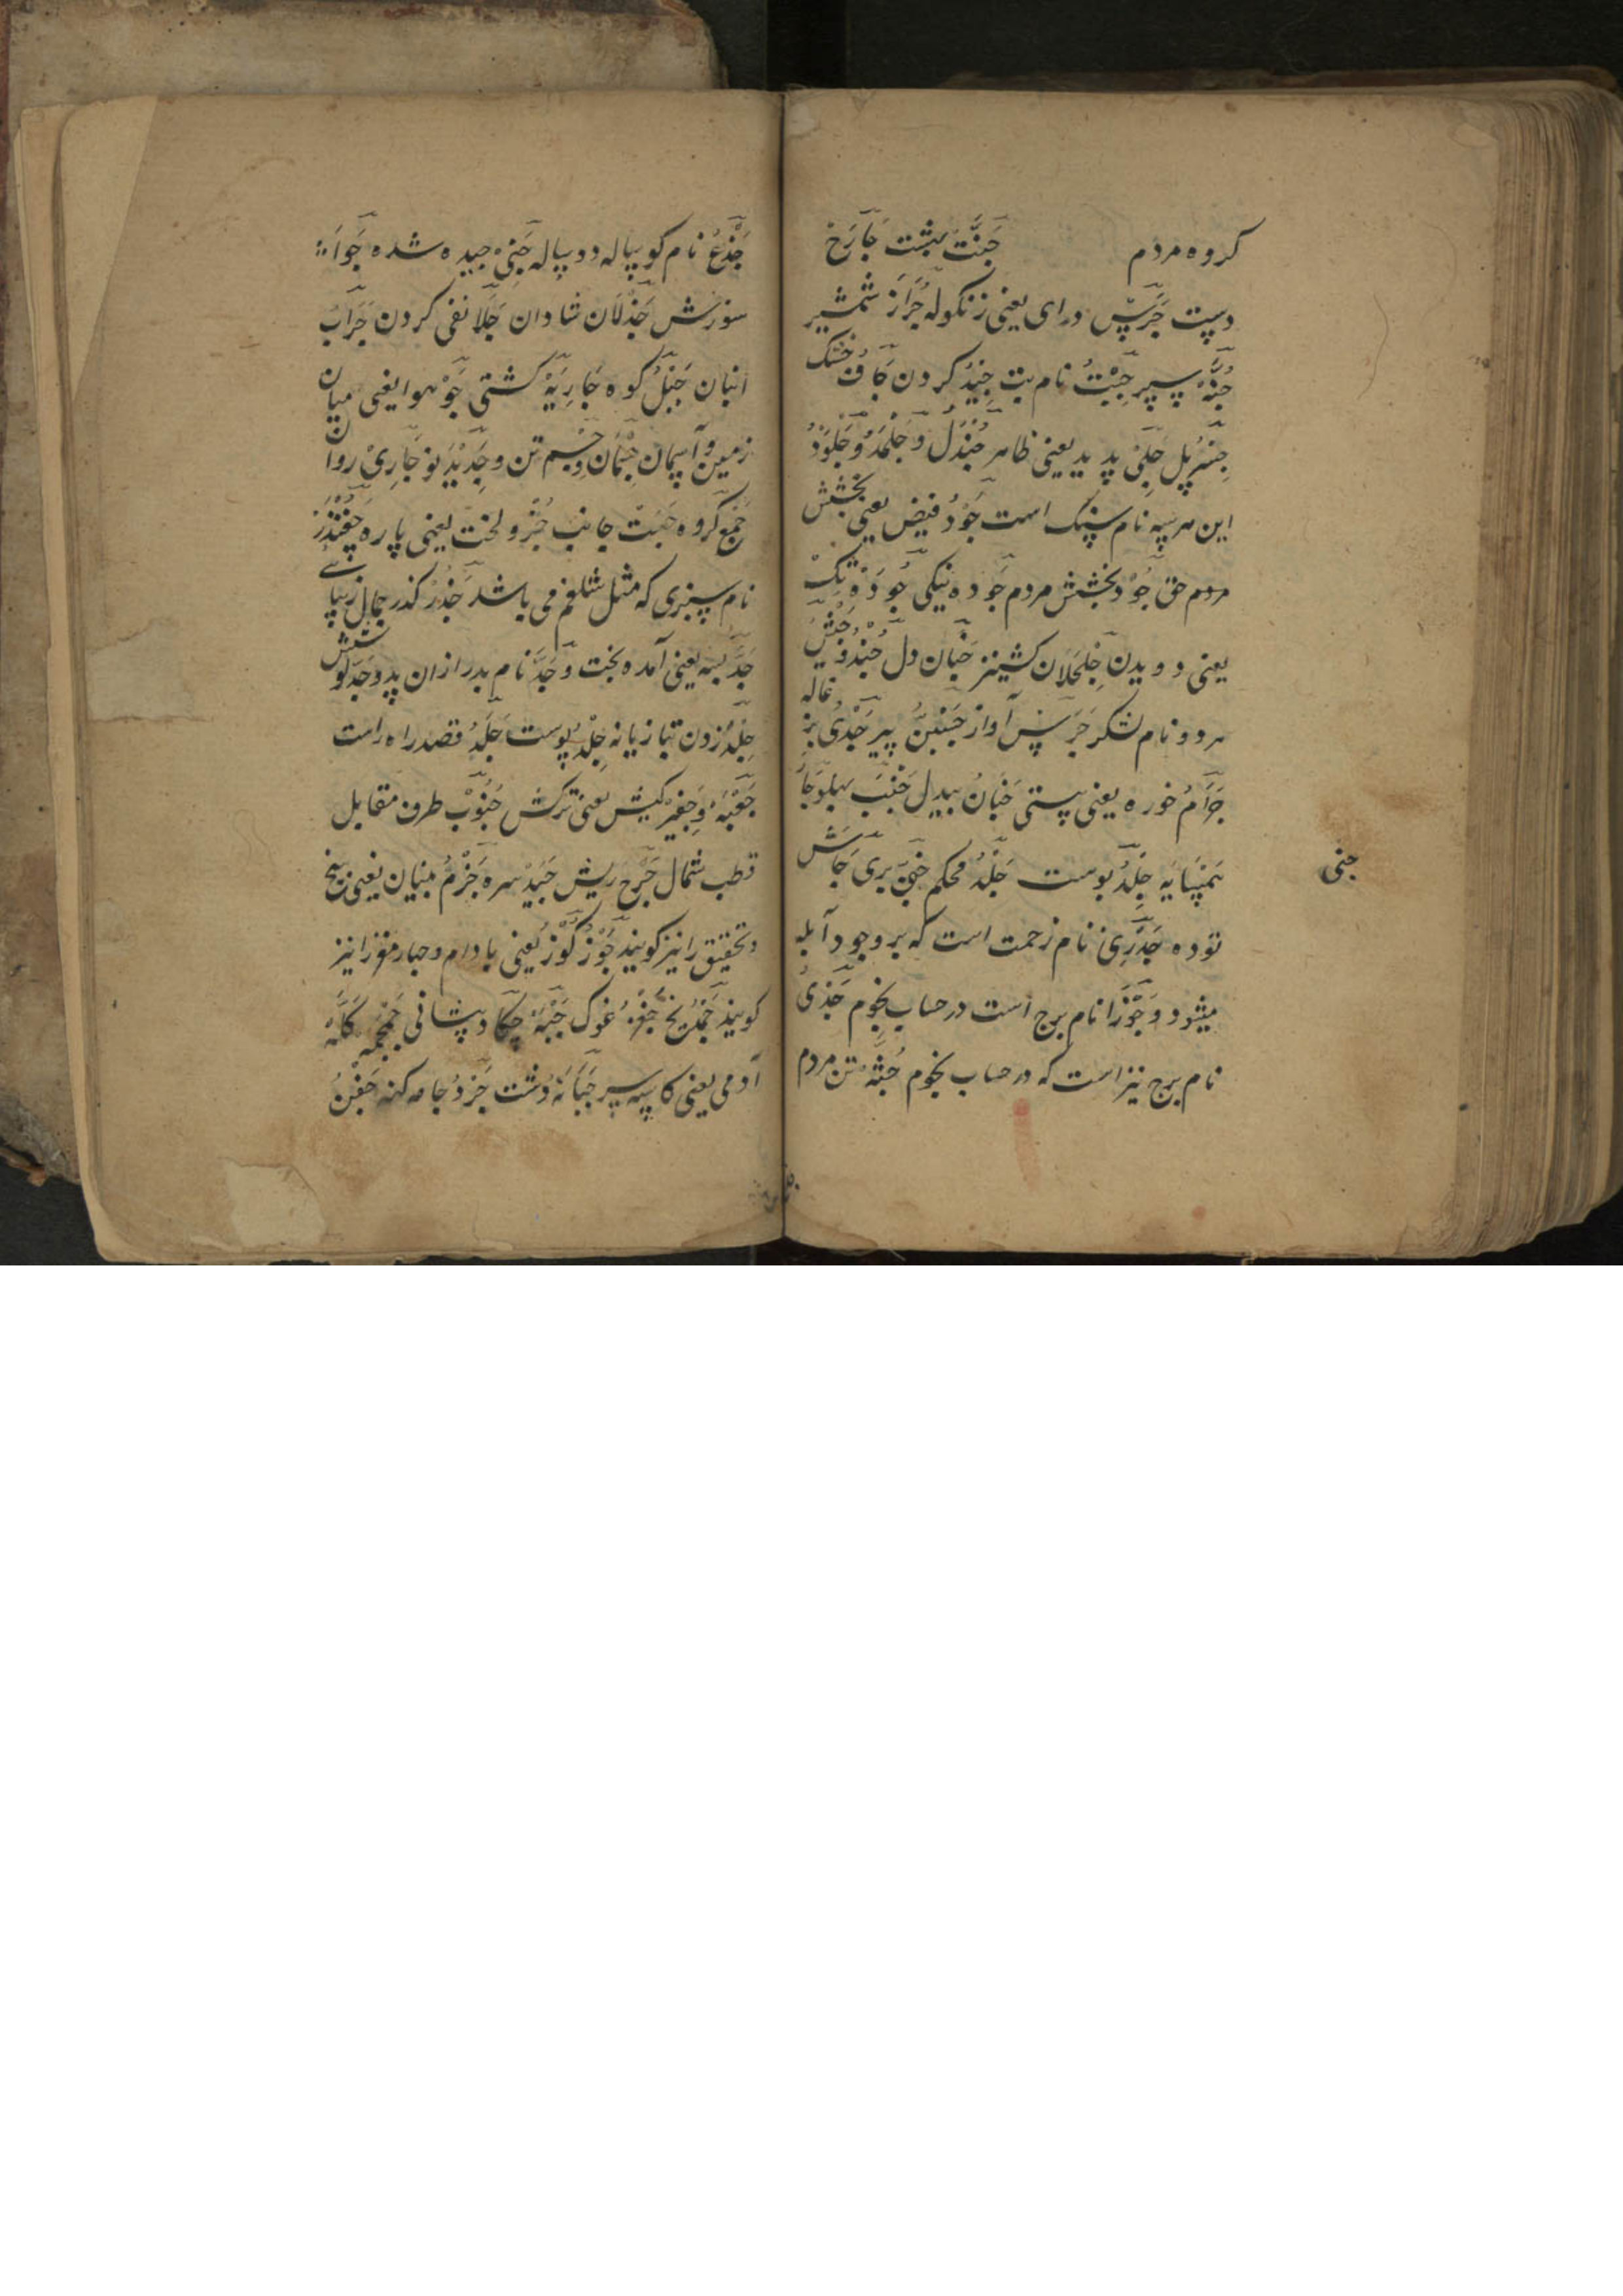 کروه مردم جَنَّت بهشت جَارَح
دست جَرَسْ درای یعنی زنکوله جُرَاز شمشیر
جُنَّهْ سپر جِبْتُ نام بت جِیدُ کردن جَافُ خشک
جِسْرُ پل جَلِیْ پدید یعنی ظاهر جَنْدَلُ وَ جَلْمَدُ وَ جَلْمُوْدُ
این هر سه نام سنک است جُوْدُ فیض یعنی بخشش
مردم حق جُوْد بخشش مردم جَوده نیکی جُودَة تک
یعنی دویدن جُلجُلَان کشنیز جَنَان دل جُنْدُ وَ جَیْشَ
هر دو نام لشکر جَرَسْ آواز جَنِیْنُ پیر جَدْیُ بزغاله
جُذَامُ خوره یعنی پستی جَبَانُ بیدل جَنْبَ پهلو جَارُ
همسایه جِلْدُ پوست جَلْدُ محکم جِنّیَ پری جَاشَ
جنی
توده جُدَرِیْ نام زحمت است که بر وجود آبله
میشود وَ جَوْزَا نام برج است در حساب نجوم جَدْیُ
نام برج نیز است که در حساب نجوم جُثّهُ تن مردم
جَذَعُ نام کوسپاله دوساله جَنِیُ چیده شده جَوَا
سوزش جَذْلَان شادان جَلَا نفی کردن جَرَابُ
انبان جَبَلُ کوه جَارِیَهْ کشتی جَوْ هوا یعنی میان
زمین و آسمان جِسْمَان وَ جِسم تن و جَدِیْدُ نو جَارِیْ روان
جَمْع کروه جَنْبَتْ جانب جُزْ و لخت یعنی پاره چُغُنْدَر
نام سبزی که مثل شلغم می باشد جَذْرُ کذر جَمال زیبائے
جَدَّ بسه یعنی آمده بخت وَ جَدَّ نام پدر از آن پدر وَ جَدَل کوشش
جَلْدُ زدن بتازیانه جِلْدُ پوست جَلَدُ قصد راه راست
جَعْبَهُ وَ جَفِیْر کیش یعنی ترکش جَنُوْبْ طرف مقابل
قطب شمال جَرْح ریش جَیِّدْ سره جَزْمُ بنیان یعنی بیخ
و تحقیق را نیز کویند جَوْزُ کَوْزُ یعنی بادام و چهار مغز را نیز
کویند جَمَدُ یخ غُوک جَبْهَهْ چکاد پیشانی جُمْجُمه کَلَّهْ
آدمی یعنی کاسه سر جَبَّانَهْ دشت جَرْدُ جامه کهنه جَفْنُ